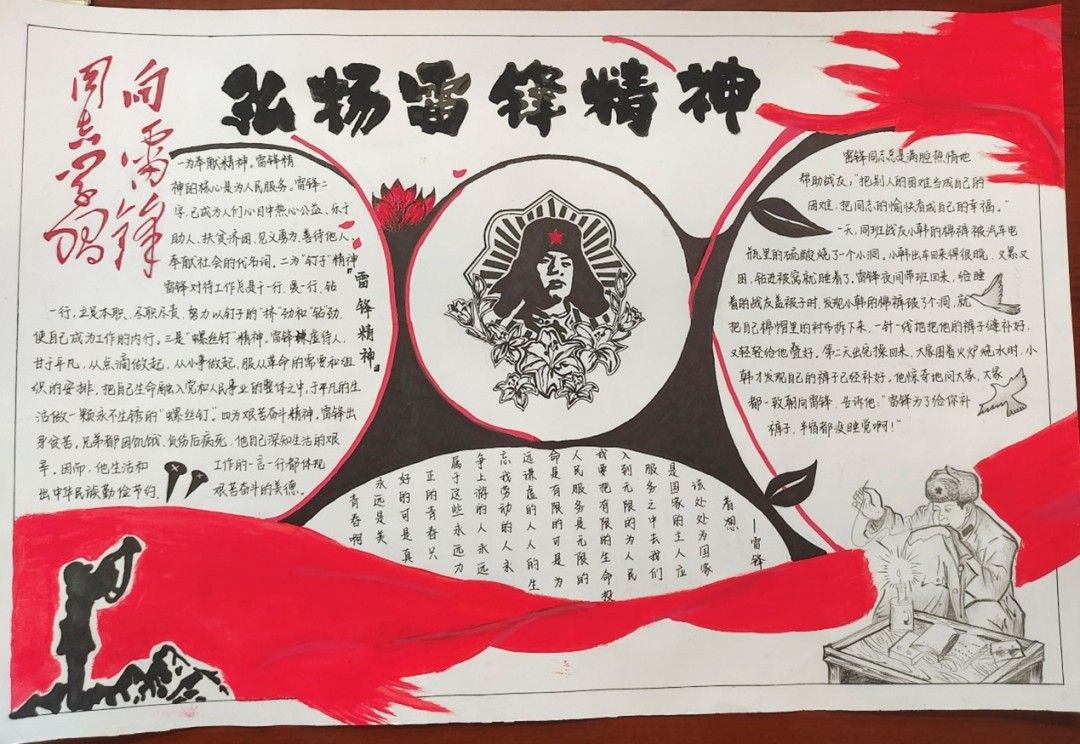 弘扬雷锋精神
向雷锋
同志学习
一为奉献精神。雷锋精
神的核心是为人民服务。雷锋二
字,已成为人们心目中热心公益、乐于
助人、扶贫济困、见义勇为、善待他人、
奉献社会的代名词。二为“钉子”精神。
雷锋对待工作总是干一行、爱一行、钻
一行,立足本职、尽职尽责,努力以钉子的“挤”劲和“钻”劲,
使自己成为工作的内行。三是“螺丝钉”精神。雷锋虚待人,
甘于平凡,从点滴做起,从小事做起,服从革命的需要和组
织的安排,把自己生命融入党和人民事业的整体之中,于平凡的生
活做一颗永不生锈的“螺丝钉”。四为艰苦奋斗精神。雷锋出
身贫苦,兄弟都因饥饿、负伤后病死,他自己深知生活的艰
辛。因而,他生活和工作的一言一行都体现
出中华民族勤俭节约、艰苦奋斗的美德。
雷锋精神
雷锋同志总是满腔热情地
帮助战友:“把别人的困难当成自己的
困难,把同志的愉快看成自己的幸福。”
一天,同班战友小韩的棉裤被汽车电
瓶里的硫酸烧了个小洞,小韩出车回来得很晚,又累又
困,钻进被窝就睡着了。雷锋夜间带班回来,给睡
着的战友盖被子时,发现小韩的棉裤破了个洞,就
把自己棉帽里的衬布拆下来,一针一线地把他的裤子缝补好,
又轻轻给他叠好。第二天出完操回来,大家围着火炉烧水时,小
韩才发现自己的裤子已经补好。他惊奇地问大家,大家
都一致朝向雷锋,告诉他:“雷锋为了给你补
裤子,半宿都没睡觉啊!”
——雷锋
着想
该处处为国家
是国家的主人应
服务之中去我们
入到无限的为人民
我要把有限的生命投
人民服务是无限的
命是有限的可是为
远谦虚的人人的生
忘我劳动的人永
争上游的人永远
属于这些永远力
正的青春只
好的可是真
永远是美
青春啊